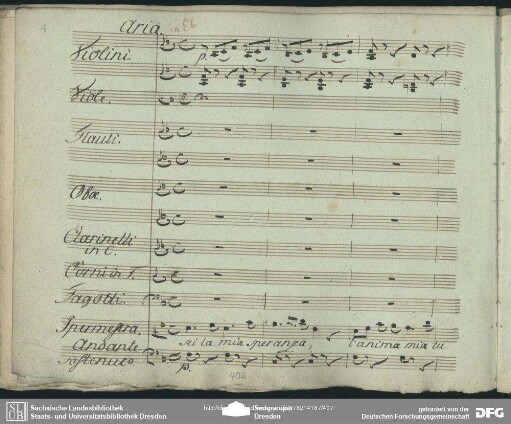 Aria.
in Eb
Violini.
p.
Viole.
Flauti.
Oboe.
Clarinetti
in C.
Corni in F.
Fagotti.
Ipermestra.
sei la mia speranza, l'anima mia tu
Andante
sostenuto
p.
SLUB
Sächsische Landesbibliothek
Staats- und Universitätsbibliothek Dresden
Dresden
gefördert von der
Deutschen Forschungsgemeinschaft
DFG